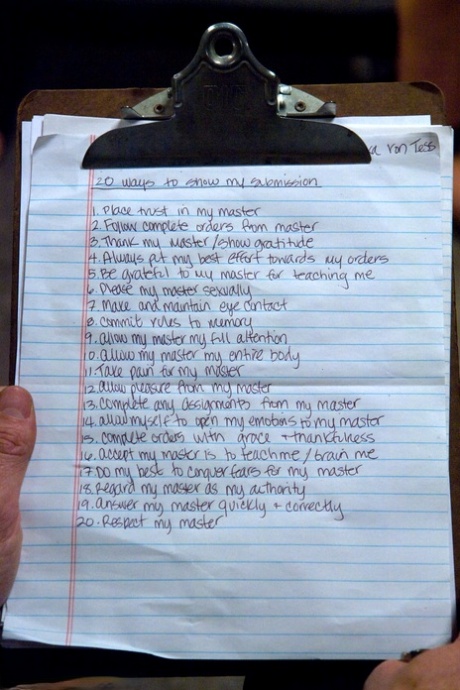 von Tess
20 ways to show my submission
1. Place trust in my master
2. Follow complete orders from master
3. Thank my master/show gratitude
4. Always put my best effort towards my orders
5. Be grateful to my master for teaching me
6. Please my master sexually
7. Make and maintain eye contact
8. Commit rules to memory
9. Allow my master my full attention
10. Allow my master my entire body
11. Take pain for my master
12. Allow pleasure from my master
13. Complete any assignments from my master
14. allow myself to open my emotions to my master
15. complete orders with grace + thankfulness
16. Accept my master is to teach me / train me
17. Do my best to conquer fears for my master
18. Regard my master as my authority
19. Answer my master quickly + correctly
20. Respect my master